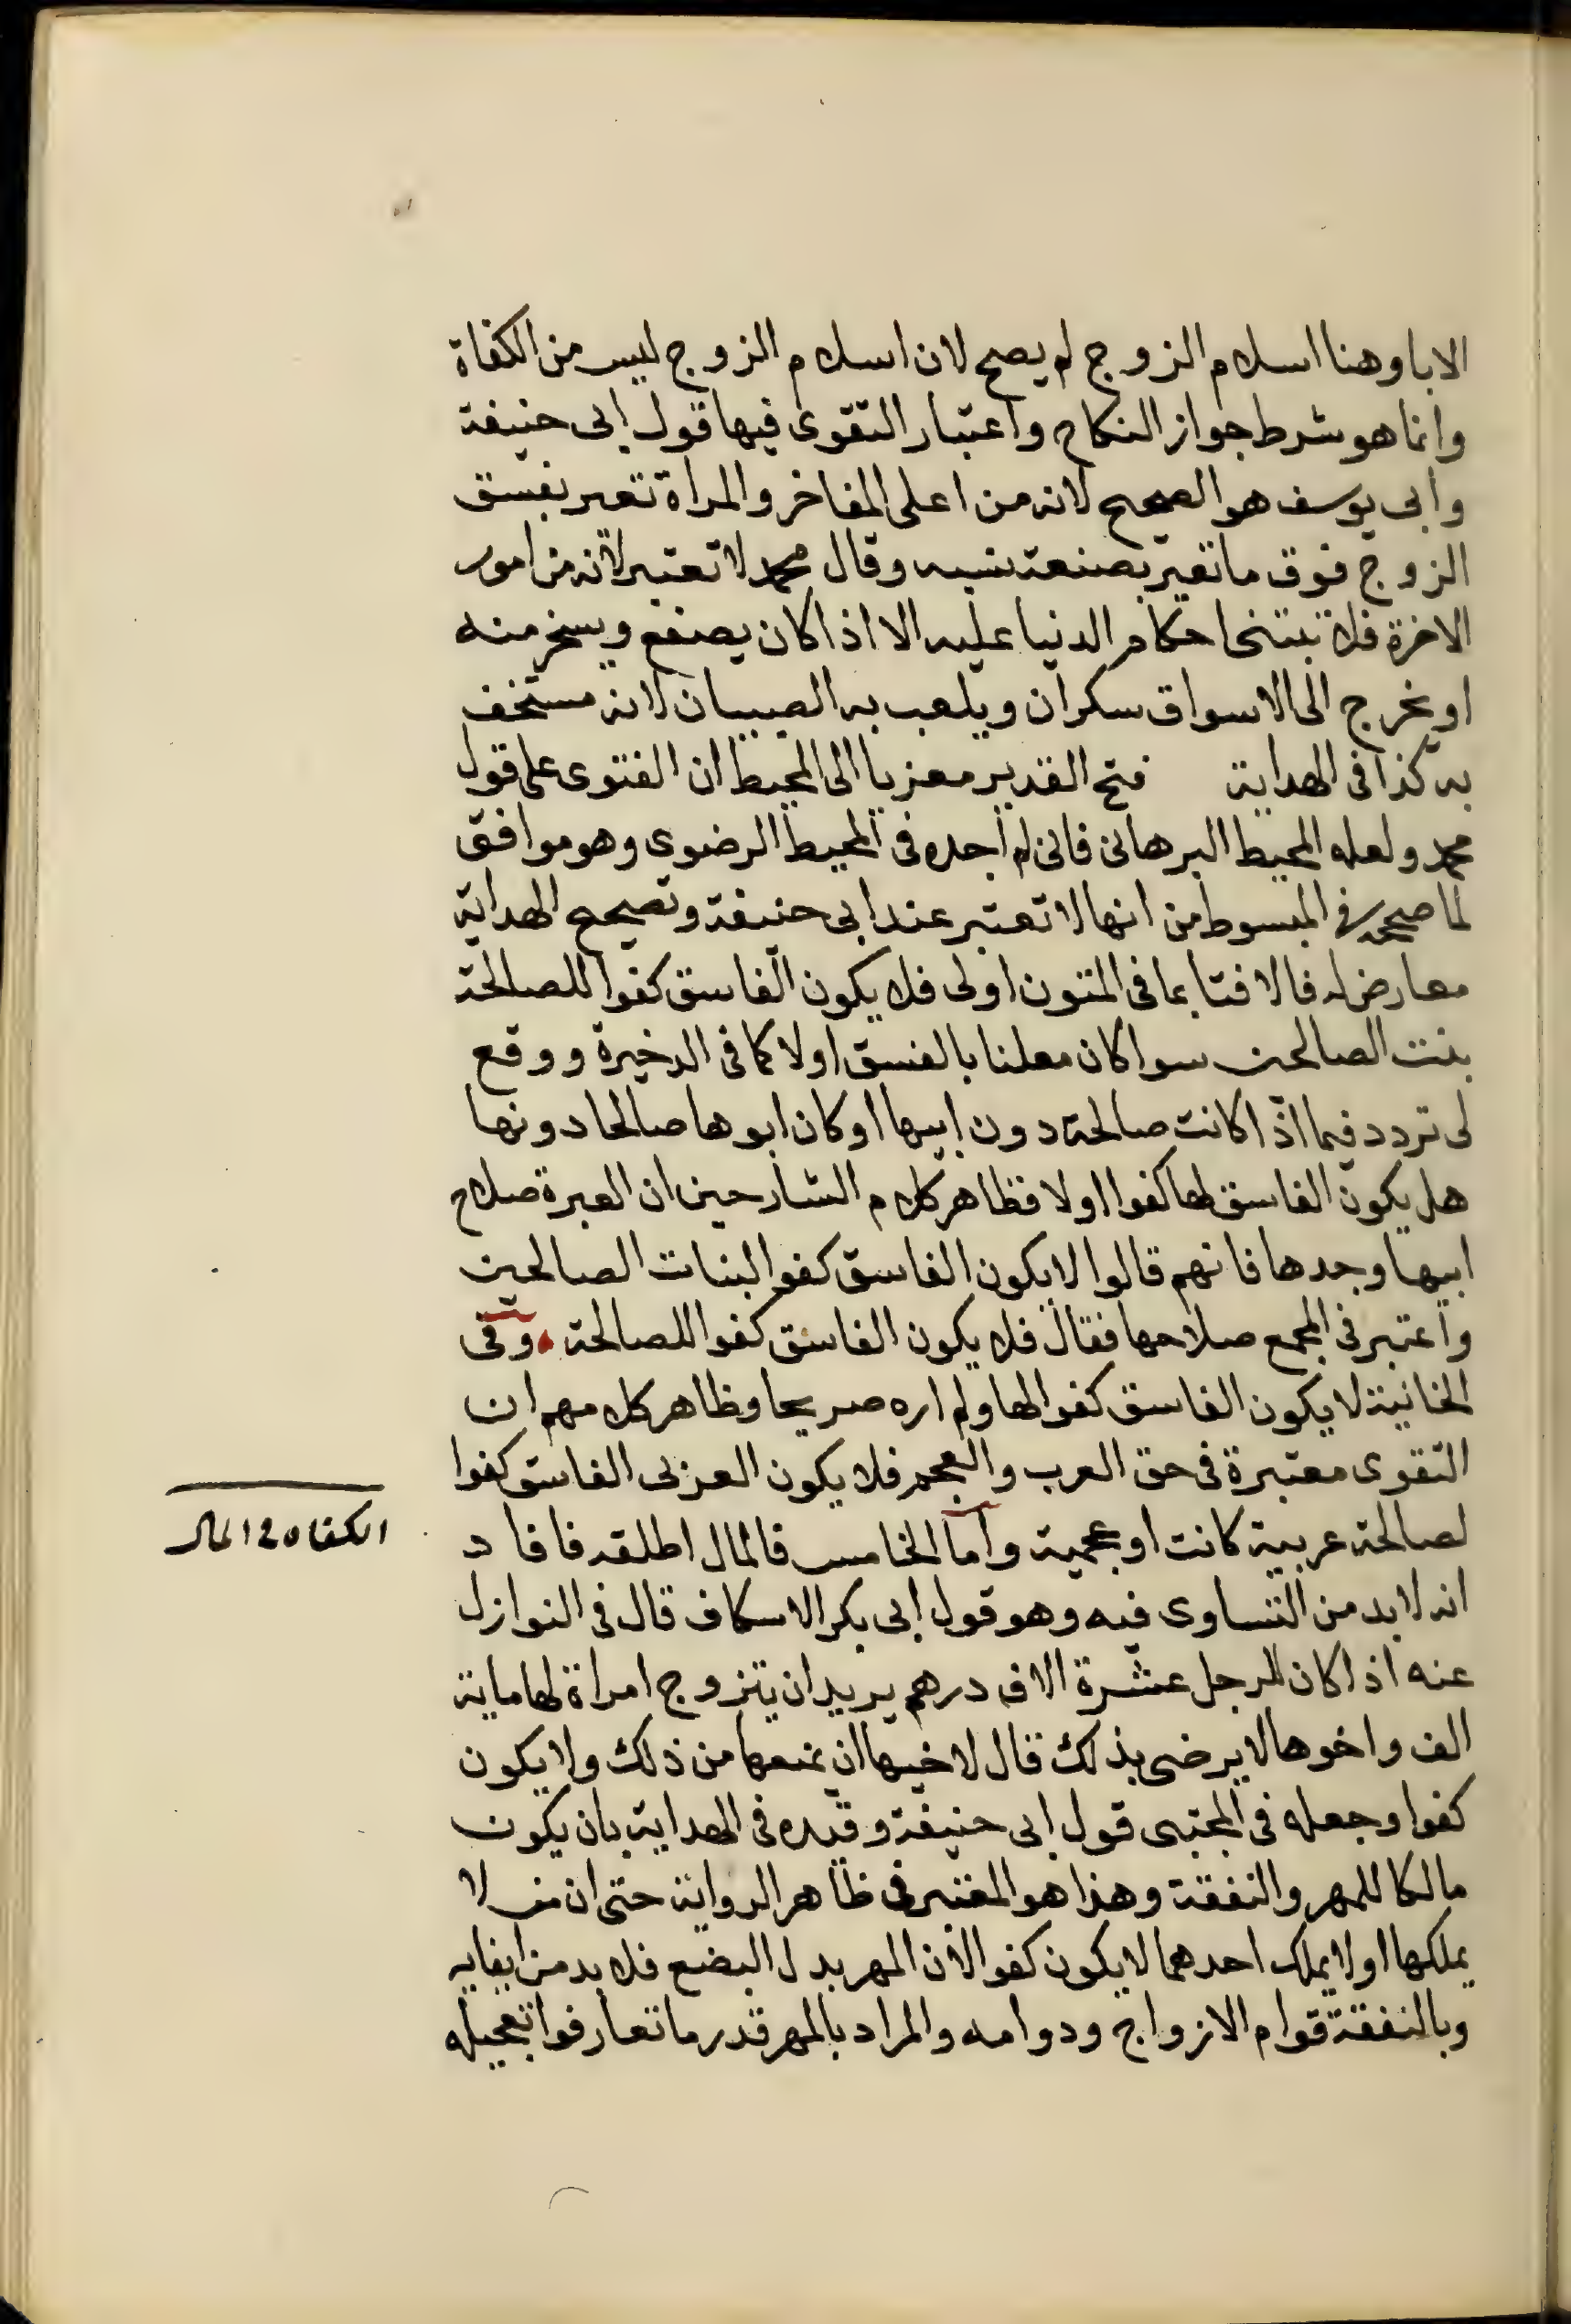 الاباوهنا اسلام الزوج لم يصح لان اسلام الزوج ليس من الكفاة
وانما هو شرط جواز النكاح واعتبار التقوى فيها قول ابى حنيفة
وابى يوسف هو الصحيح لانه من اعلى المفاخر والمراة تعير بفسق
الزوج فوق ما تعير بصنعة نسبه وقال محمد لا تعتبر لانه من امور
الاخرة فلا تبتنى احكام الدنيا عليه الا اذا كان يصفع ويسخر منه
او يخرج الى الاسواق سكران ويلعب به الصبيان لانه مستخف
به كذا فى الهداية فتح القدير معزيا الى المحيط ان الفتوى على قول
محمد ولعله المحيط البرهانى فانى لم اجده فى المحيط الرضوى وهو موافق
لما صححه فى المبسوط من انها لا تعتبر عند ابى حنيفة وتصحيح الهداية
معارض له فالافتا بما فى المتون اولى فلا يكون الفاسق كفوا للصالحة
بنت الصالحين سوا كان معلنا بالفسق اولا كما فى الذخيرة ووقع
لى تردد فيما اذا كانت صالحة دون ابيها او كان ابوها صالحا دونها
هل يكون الفاسق لها كفوا اولا فظاهر كلام الشارحين ان العبرة صلاح
ابيها وجدها فانهم قالوا لا يكون الفاسق كفوا لبنات الصالحين
واعتبر فى المجمع صلاحها فقال فلا يكون الفاسق كفوا للصالحة وفى
الخانية لا يكون الفاسق كفوا لها ولم اره صريحا وظاهر كلامهم ان
التقوى معتبرة فى حق العرب والعجم فلا يكون العربى الفاسق كفوا
لصالحة عربية كانت او عجمية واما الخامس فالمال اطلقه فافاد
انه لابد من التساوى فيه وهو قول ابى بكر الاسكاف قال فى النوازل
عنه اذا كان للرجل عشرة الاف درهم يريد ان يتزوج امراة لها ماية
الف واخوها لا يرضى بذلك قال لاخيها ان يمنعها من ذلك ولا يكون
كفوا وجعله فى المجتبى قول ابى حنيفة وقيده فى الهداية بان يكون
مالكا للمهر والنفقة وهذا هو المعتبر فى ظاهر الرواية حتى ان من لا
يملكها او لا يملك احدهما لا يكون كفوا لان المهر بدل البضع فلا بد من ايفايه
وبالنفقة قوام الازواج ودوامه والمراد بالمهر قدر ما تعارفوا تعجيله
الكفاه فى المال